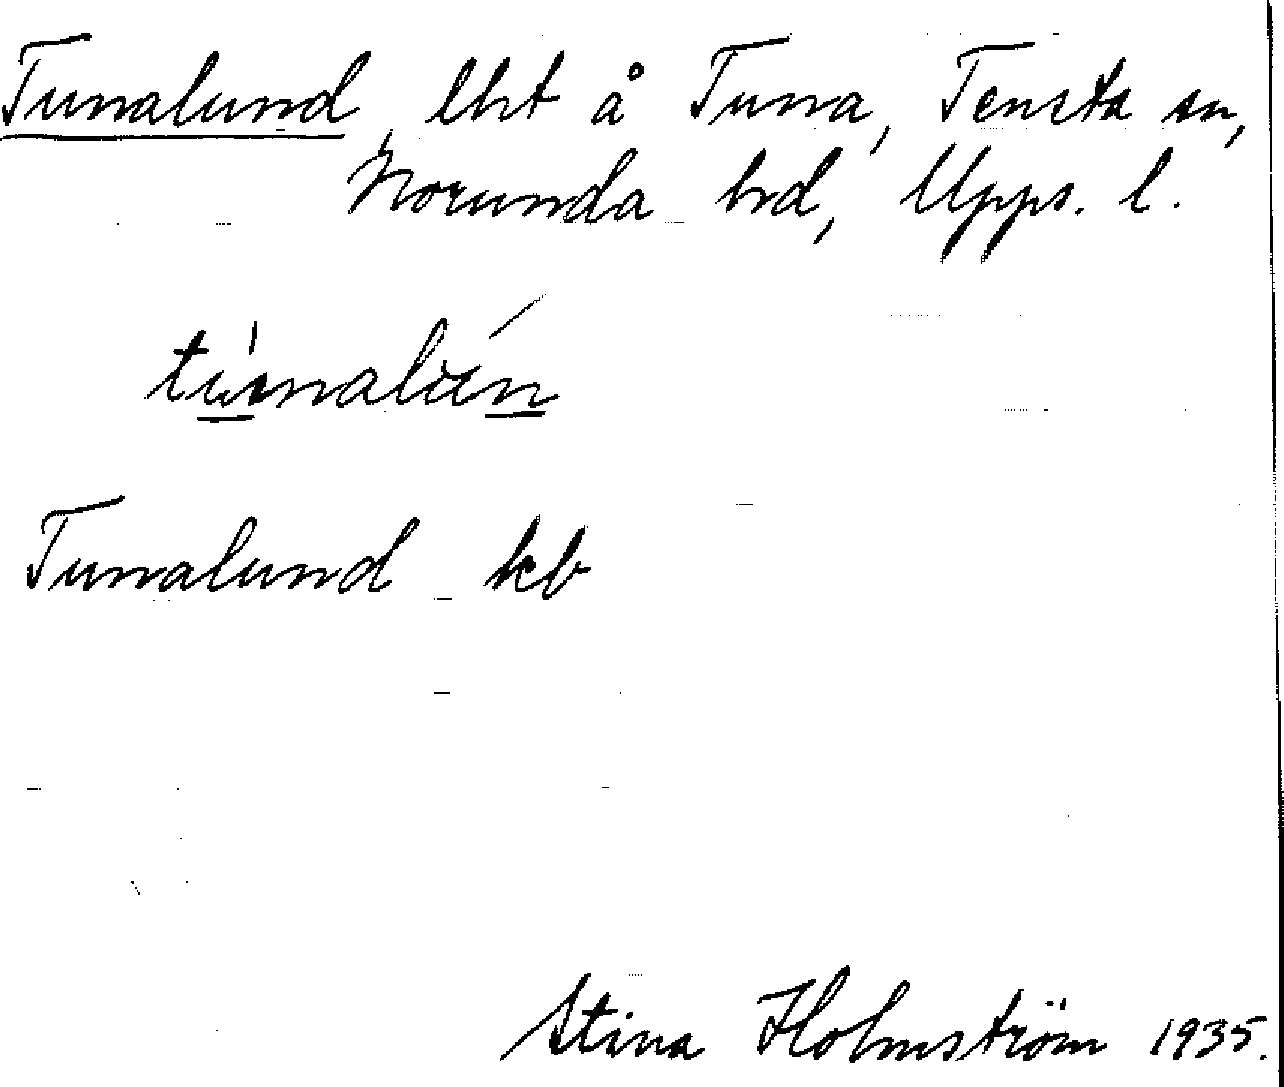 Tunalund, lht å Tuna, Tensta sn,
Norunda hd, Upps. l.
tù̲nalún̲
Tunalund kb
Stina Holmström 1935.